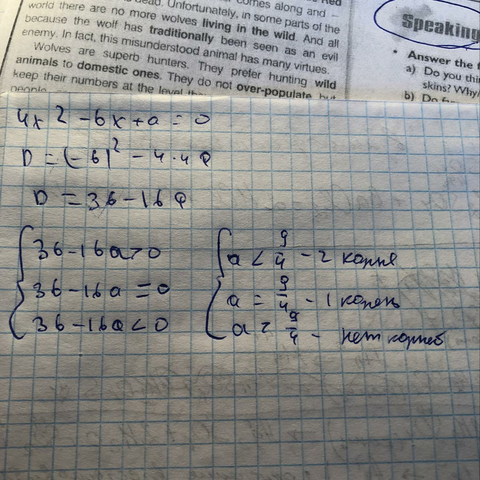 comes along and –
world there are no more wolves living in the wild. And all
because the wolf has traditionally been seen as an evil
enemy. In fact, this misunderstood animal has many virtues.
Wolves are superb hunters. They prefer hunting wild
animals to domestic ones. They do not over-populate but
keep their numbers at the level
Speaking
• Answer the
a) Do you
skins? Why
b) Do
4x² - 6x + a = 0
D = (-6)² - 4·4a
D = 36 - 16a
36 - 16a > 0
36 - 16a = 0
36 - 16a < 0
a < 9/4 - 2 корня
a = 9/4 - 1 корень
a > 9/4 - нет корней